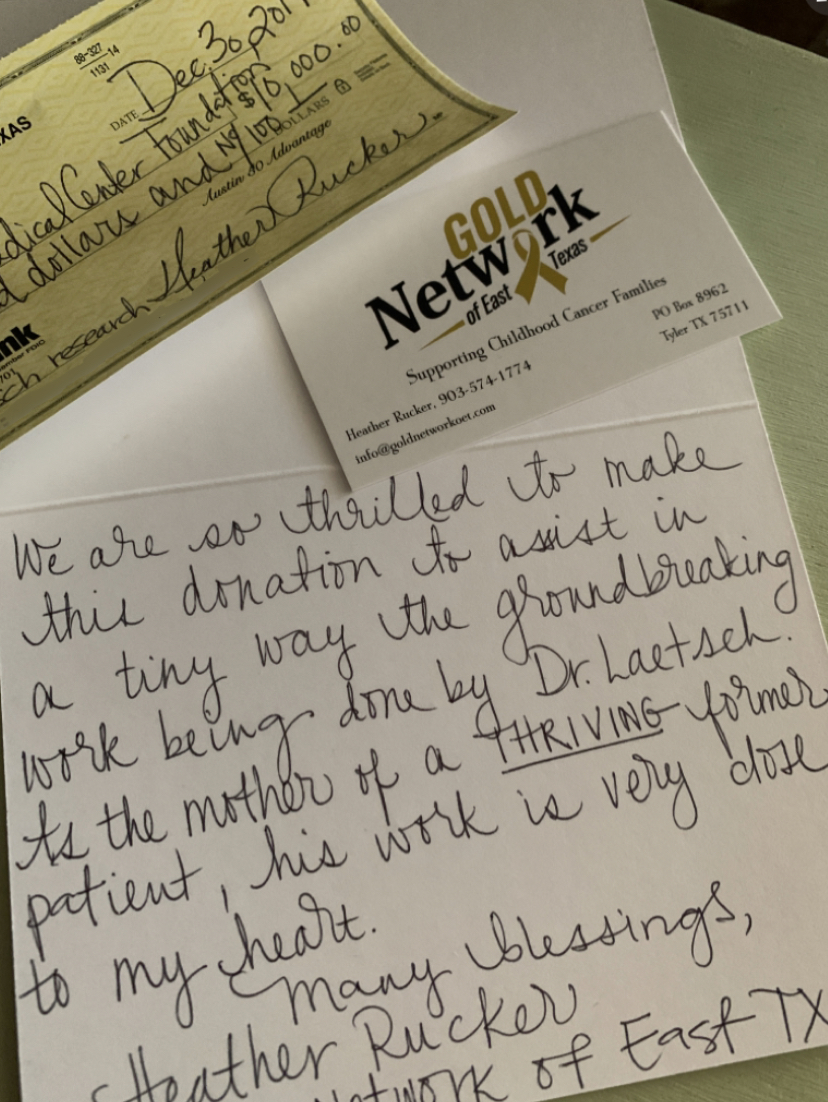 88-327
1131
14
DATE Dec. 30, 201
XAS
dical Center Foundation $10,000.00
d dollars and No/100 DOLLARS
Austin 80 Advantage
Heather Rucker
nk
Member FDIC
701
sch research
GOLD
Network
of East Texas
Supporting Childhood Cancer Families
PO Box 8962
Tyler TX 75711
Heather Rucker, 903-574-1774
info@goldnetworkoet.com
We are so thrilled to make
this donation to assist in
a tiny way the groundbreaking
work being done by Dr. Laetsch.
As the mother of a THRIVING former
patient, his work is very close
to my heart.
Many blessings,
Heather Rucker
etwork of East TX